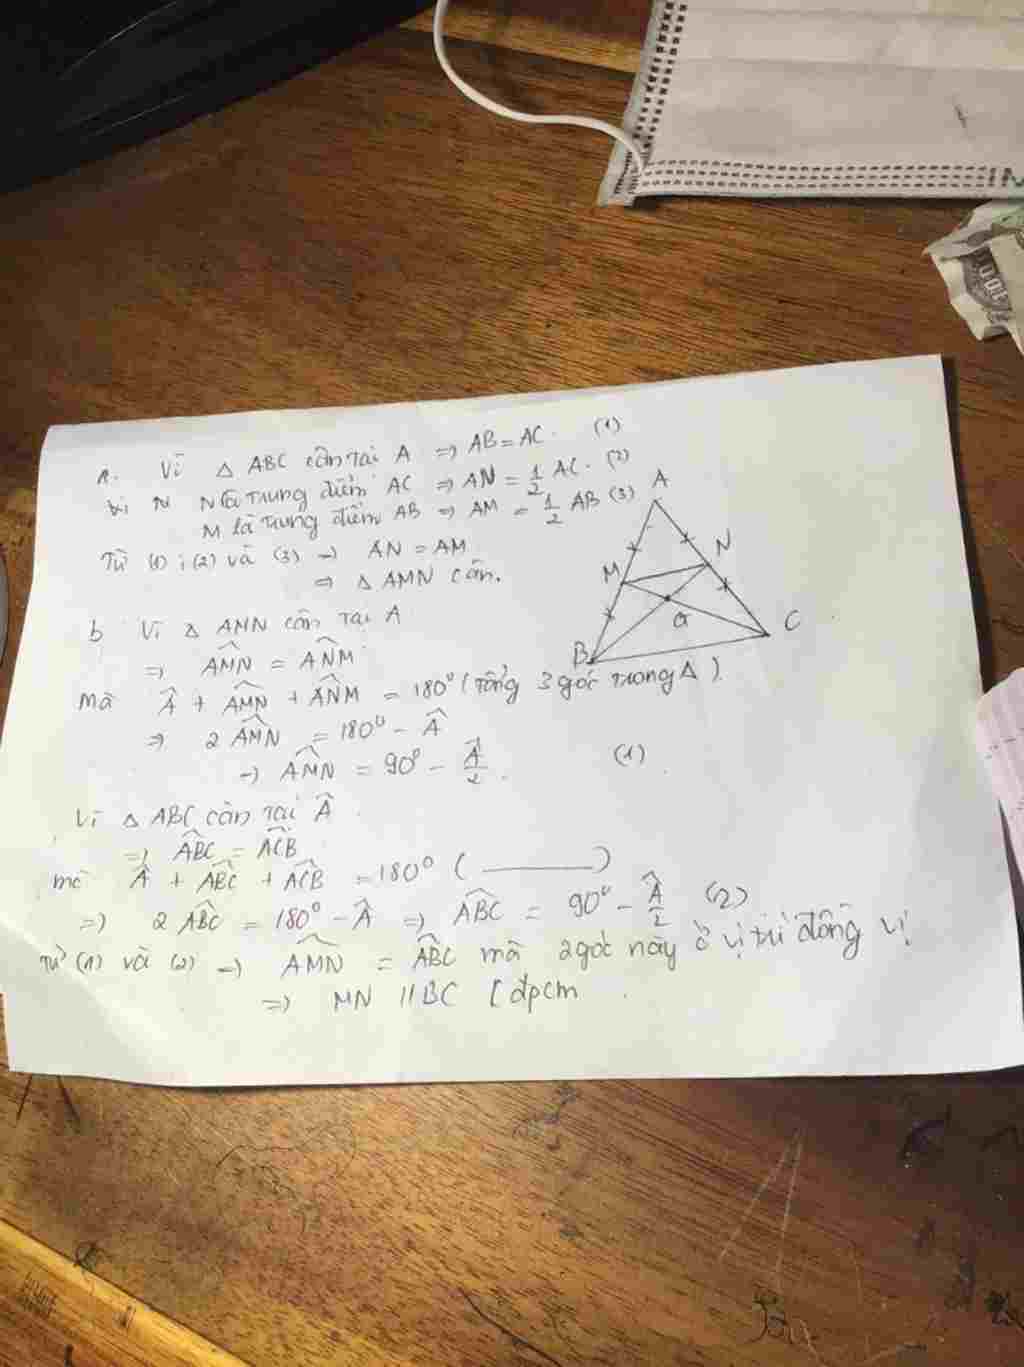 a. Vì △ ABC cân tại A => AB = AC. (1)
vì N N là trung điểm AC => AN = 1/2 AC. (2)
M là trung điểm AB => AM = 1/2 AB (3)
Từ (1); (2) và (3) => AN = AM
=> △ AMN cân.
A
M
N
B
C
G
b Vì △ AMN cân tại A
=> AMN̂ = ANM̂
mà Â + AMN̂ + ANM̂ = 180° (tổng 3 góc trong △).
=> 2 AMN̂ = 180° - Â
=> AMN̂ = 90° - Â/2. (1)
Vì △ ABC cân tại Â
=> ABĈ = ACB̂
mà Â + ABĈ + ACB̂ = 180° ( ——— )
=> 2 ABĈ = 180° - Â => ABĈ = 90° - Â/2 (2)
Từ (1) và (2) => AMN̂ = ABĈ mà 2 góc này ở vị trí đồng vị
=> MN // BC [đpcm